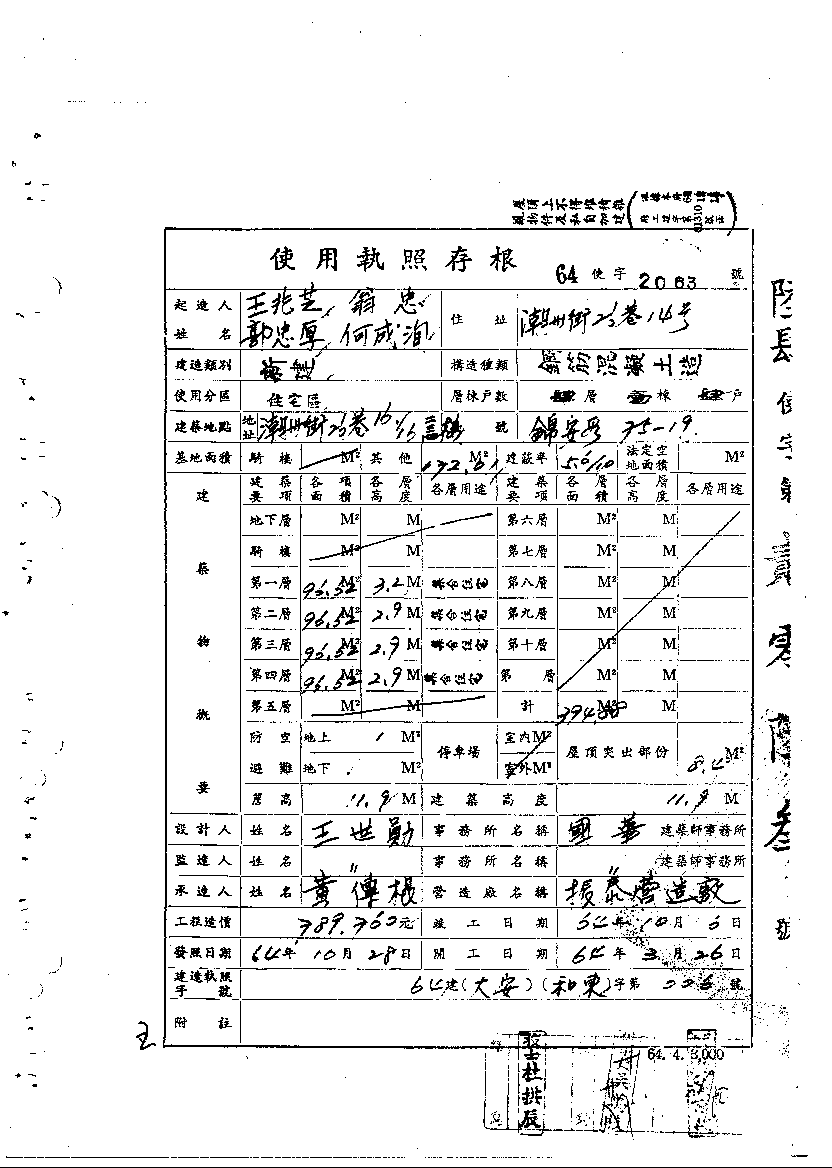 屋頂上不得堆積雜
使用執照存根
64 使字 2063 號
起造人 姓名 王兆芝 翁忠 郭忠厚 何成洵 住址 潮州街23巷14号
建造類別 新建 構造種類 鋼筋混凝土造
使用分區 住宅區 層棟戶數 肆層 棟 肆戶
建築地點 地址 潮州街23巷 號 錦安段 75-19
基地面積 騎樓 M² 其他 M² 建蔽率 5.6/10 法定空地面積 M²
建築物概要 建築要項 各項面積 各層高度 各層用途 建築要項 各層面積 各層高度 各層用途
地下層 M² M 第六層 M² M
騎樓 M² M 第七層 M² M
第一層 96.52 M² 3.2 M 集合住宅 第八層 M² M
第二層 96.52 M² 2.9 M 集合住宅 第九層 M² M
第三層 96.52 M² 2.9 M 集合住宅 第十層 M² M
第四層 96.52 M² 2.9 M 集合住宅 第 層 M² M
第五層 M² M 計 M² M
防空避難 地上 M² 停車場 室內M² 屋頂突出部份 8.4 M²
地下 M² 室外M²
簷高 11.9 M 建築高度 11.9 M
設計人 姓名 王世勛 事務所名稱 國華 建築師事務所
監造人 姓名 〃 事務所名稱 〃 建築師事務所
承造人 姓名 黃傳根 營造廠名稱 振泰營造廠
工程造價 389.360元 竣工日期 64年10月6日
發照日期 64年10月28日 開工日期 64年3月26日
建造執照字號 64建(大安)(和東)字第006號
附註
64. 4. 3,000
陸肆 使字第 貳零陸叁 號